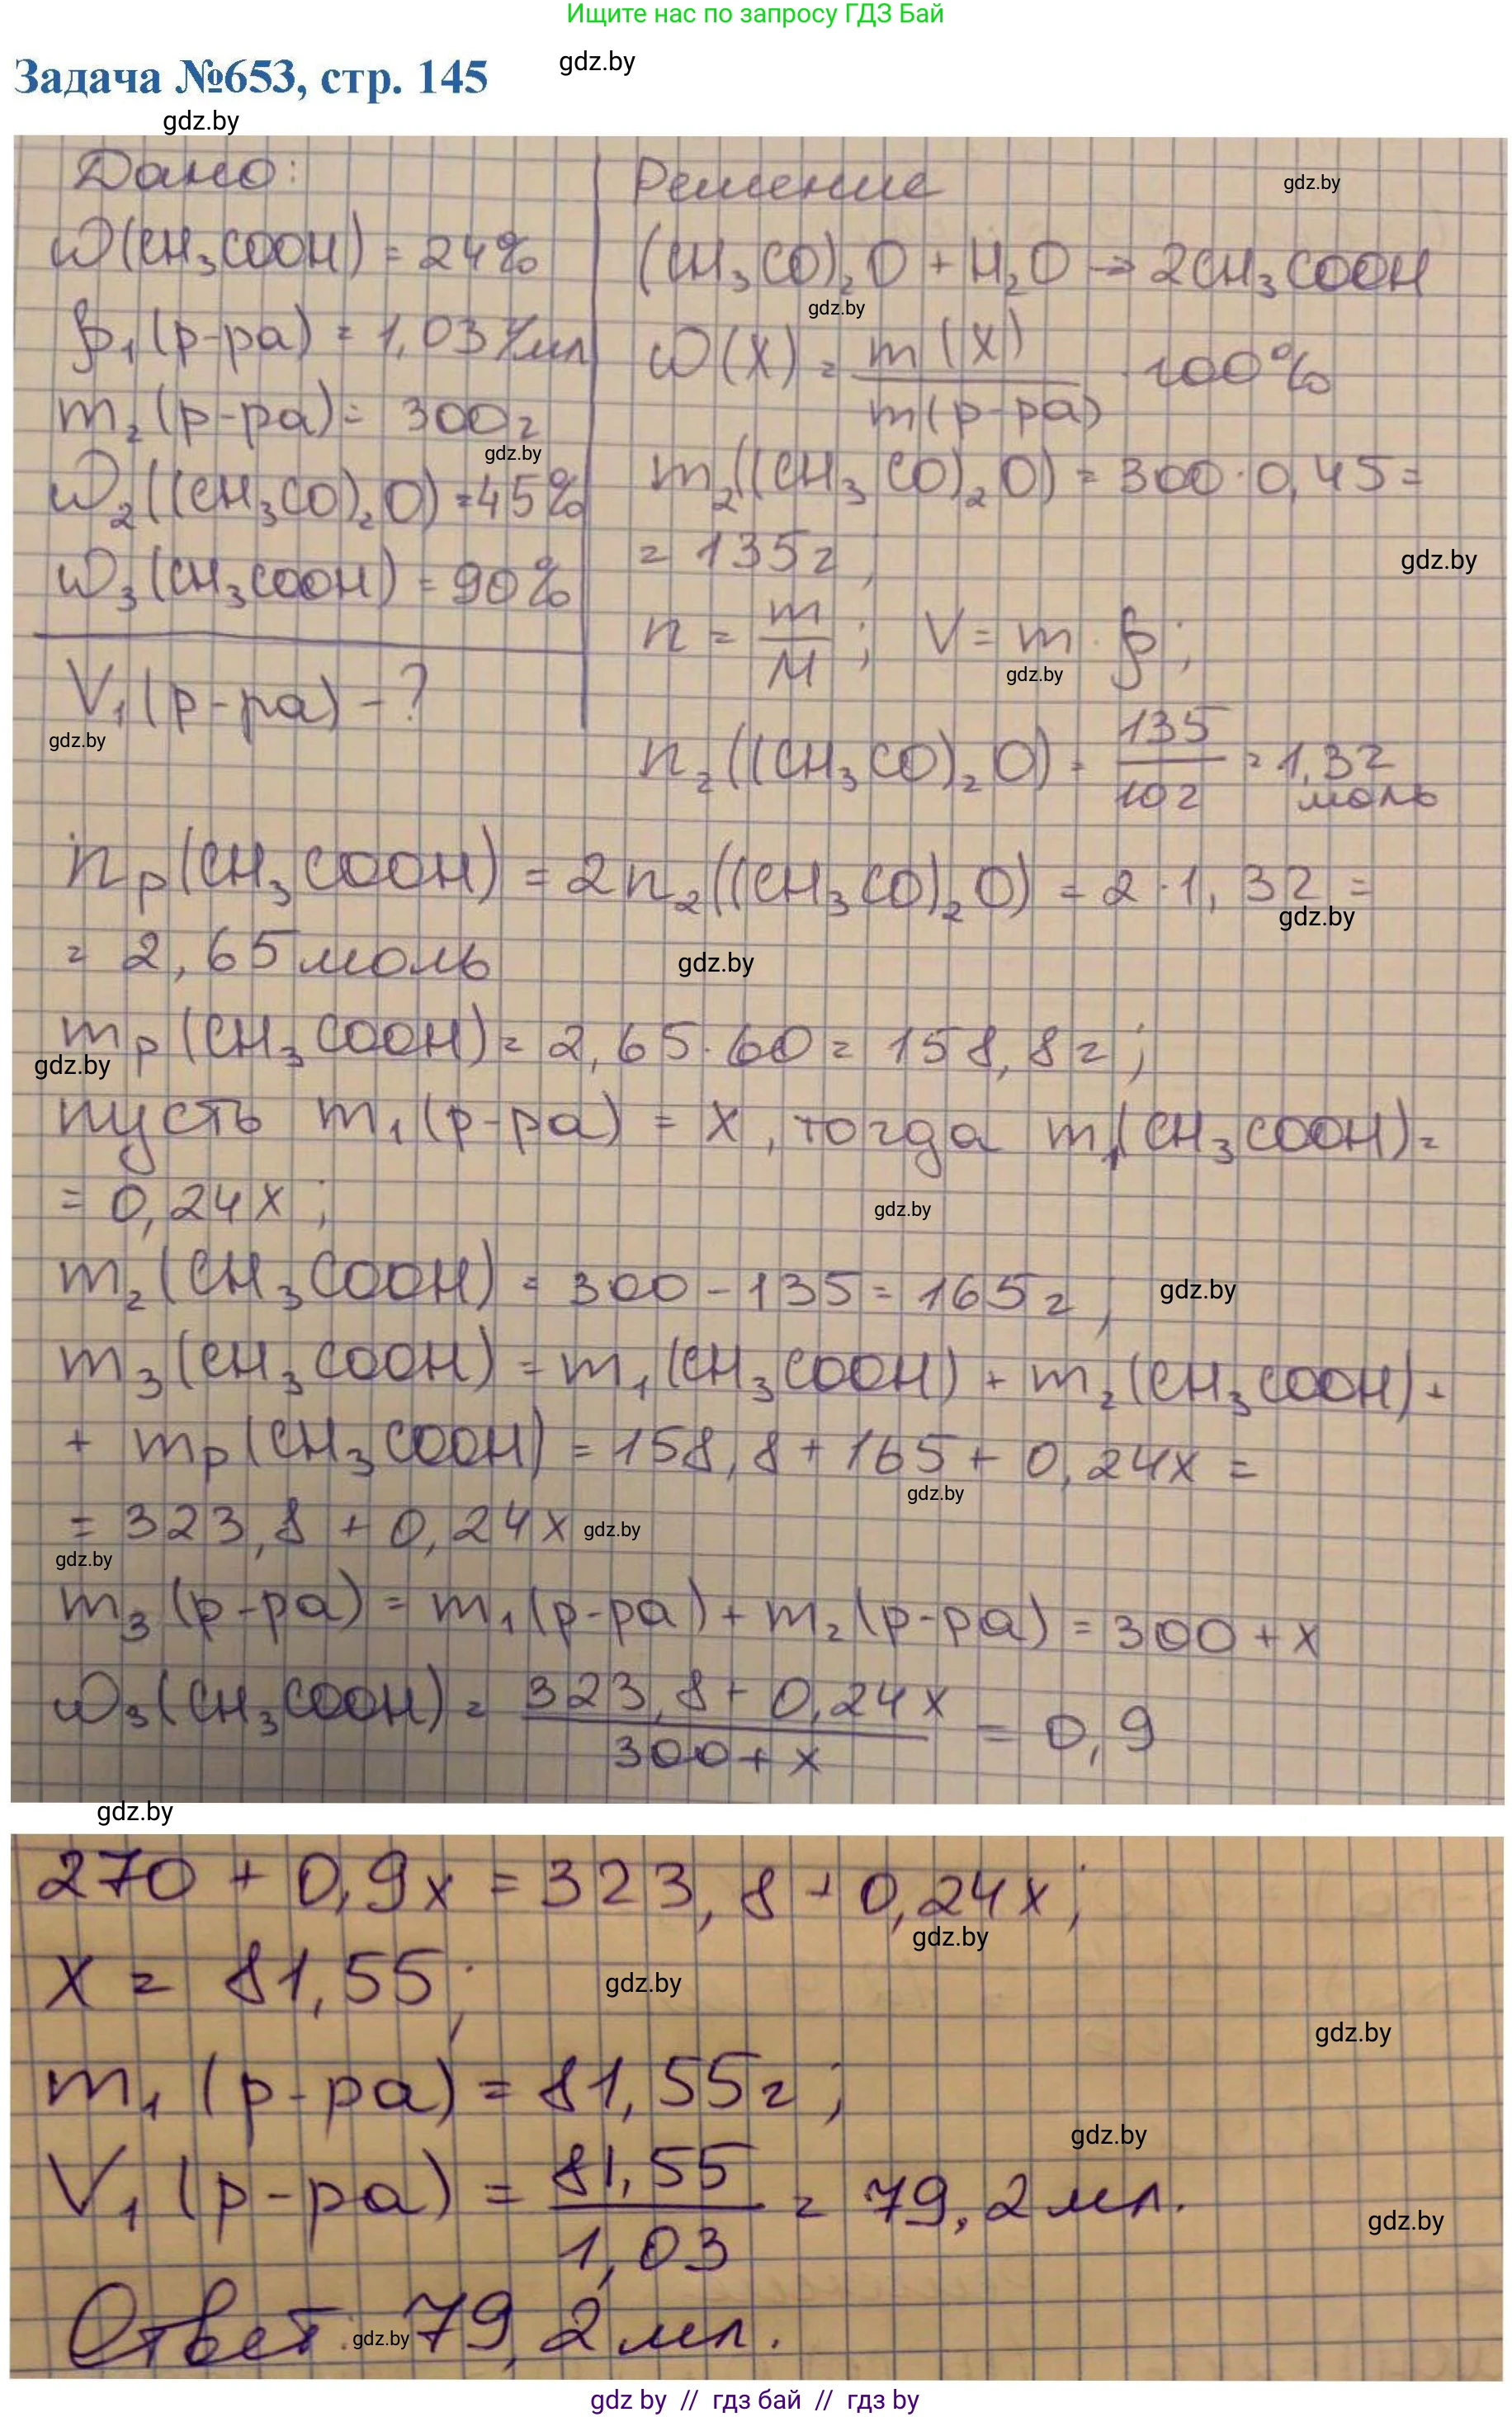 Ищите нас по запросу ГДЗ Бай
Задача №653, стр. 145
gdz.by
gdz.by
Дано:
ω(CH₃COOH) = 24%
ρ₁(р-ра) = 1,03 г/мл
m₂(р-ра) = 300г
gdz.by
ω₂((CH₃CO)₂O) = 45%
ω₃(CH₃COOH) = 90%
V₁(р-ра) - ?
gdz.by
Решение
gdz.by
(CH₃CO)₂O + H₂O → 2CH₃COOH
gdz.by
ω(X) = m(X) / m(р-ра) · 100%
m₂((CH₃CO)₂O) = 300 · 0,45 =
= 135г;
gdz.by
n = m / M; V = m · ρ;
gdz.by
n₂((CH₃CO)₂O) = 135 / 102 = 1,32 моль
nр(CH₃COOH) = 2n₂((CH₃CO)₂O) = 2 · 1,32 =
gdz.by
= 2,65 моль
gdz.by
mр(CH₃COOH) = 2,65 · 60 = 158,8г;
gdz.by
пусть m₁(р-ра) = x, тогда m₁(CH₃COOH) =
= 0,24x;
gdz.by
m₂(CH₃COOH) = 300 - 135 = 165г;
gdz.by
m₃(CH₃COOH) = m₁(CH₃COOH) + m₂(CH₃COOH) +
+ mр(CH₃COOH) = 158,8 + 165 + 0,24x =
gdz.by
= 323,8 + 0,24x
gdz.by
gdz.by
m₃(р-ра) = m₁(р-ра) + m₂(р-ра) = 300 + x
ω₃(CH₃COOH) = 323,8 + 0,24x / 300 + x = 0,9
gdz.by
270 + 0,9x = 323,8 + 0,24x;
gdz.by
x = 81,55;
gdz.by
gdz.by
m₁(р-ра) = 81,55г;
gdz.by
V₁(р-ра) = 81,55 / 1,03 = 79,2 мл.
gdz.by
Ответ: 79,2 мл.
gdz.by
gdz by // гдз бай // гдз by